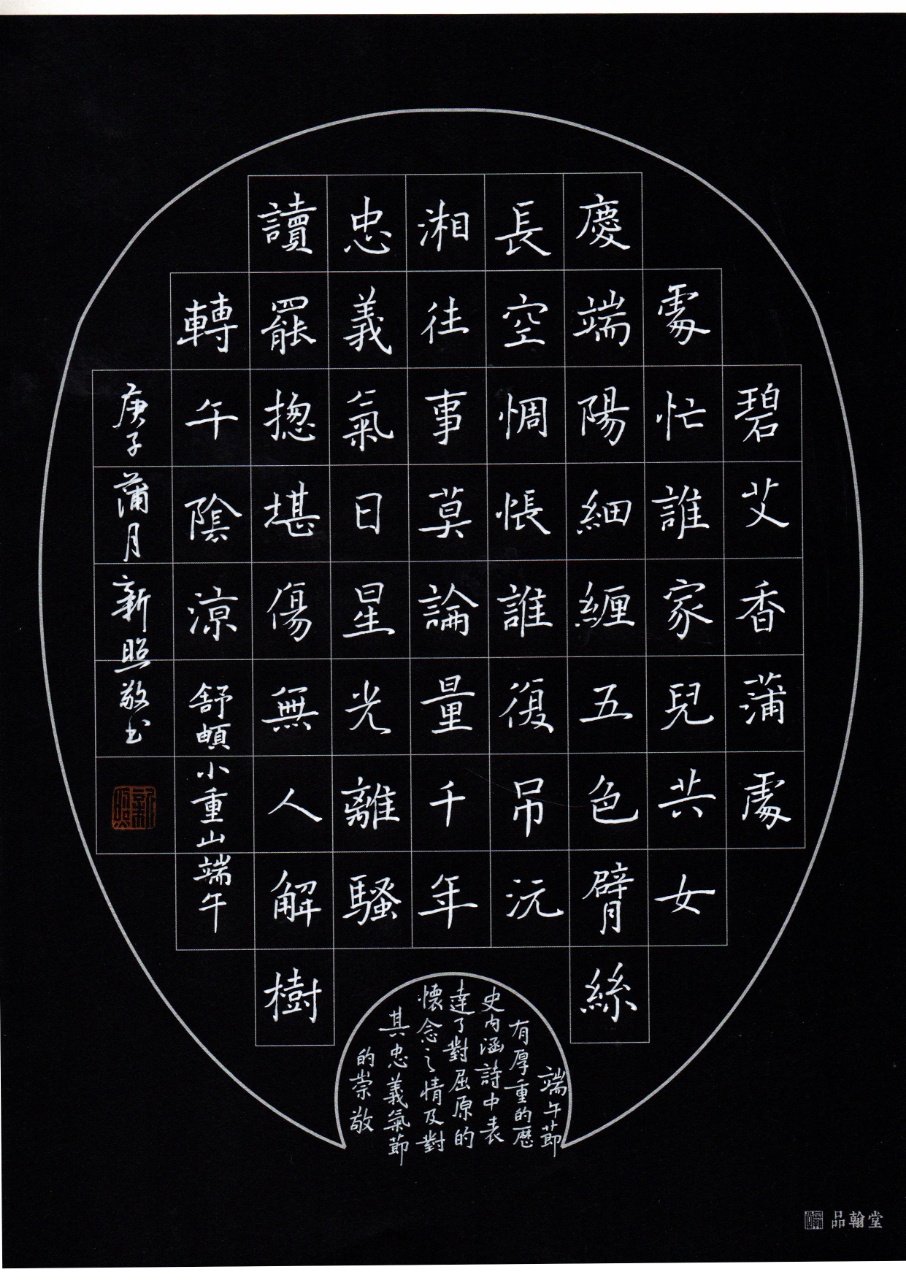 碧艾香蒲處
處忙誰家兒共女
慶端陽細纏五色臂絲
長空惆悵誰復吊沅
湘往事莫論量千年
忠義氣日星光離騷
讀罷揔堪傷無人解樹
轉午陰涼舒頔小重山端午
庚子蒲月新照敬书
新照
端午節
有厚重的歷
史内涵詩中表
達了對屈原的
懷念之情及對
其忠義氣節
的崇敬
品翰堂